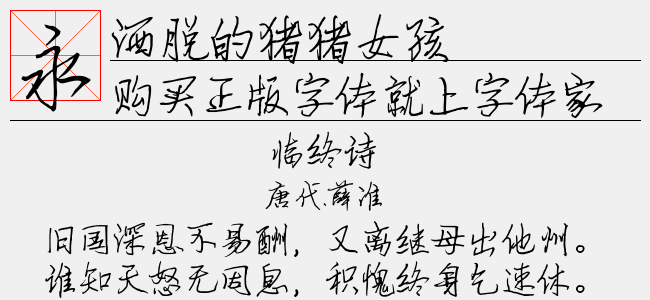 永
洒脱的猪猪女孩
购买正版字体就上字体家
临终诗
唐代:薛准
旧国深恩不易酬，又离继母出他州。
谁知天怒无因息，积愧终身乞速休。